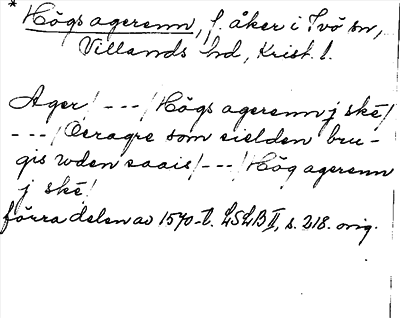 * Högs agerenn, f. åker i Ivö sn,
Villands hd, Krist. l.
Ager/ --- / Högs agerenn j ské/
--- / Øeragre som sielden bru-
gis uden saais/ --- / Hög agerenn
j ské/
förra delen av 1570-t. LSLB II, s. 218. orig.